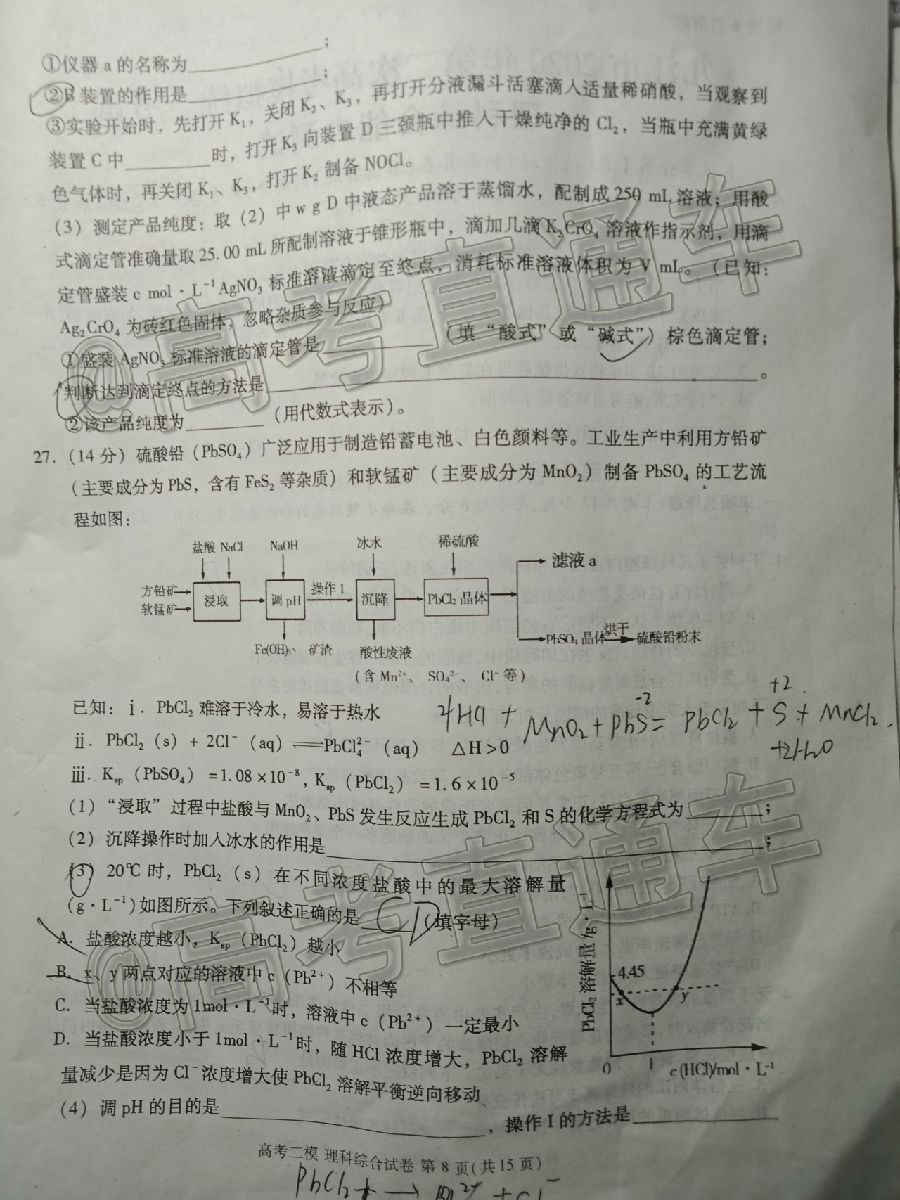 ①仪器 a 的名称为____________；
②B 装置的作用是____________；
③实验开始时，先打开 K₁，关闭 K₂、K₃，再打开分液漏斗活塞滴入适量稀硝酸，当观察到
装置 C 中________时，打开 K₃ 向装置 D 三颈瓶中推入干燥纯净的 Cl₂，当瓶中充满黄绿
色气体时，再关闭 K₁、K₃，打开 K₂ 制备 NOCl。
（3）测定产品纯度：取（2）中 w g D 中液态产品溶于蒸馏水，配制成 250 mL 溶液；用酸
式滴定管准确量取 25.00 mL 所配制溶液于锥形瓶中，滴加几滴 K₂CrO₄ 溶液作指示剂，用滴
定管盛装 c mol·L⁻¹ AgNO₃ 标准溶液滴定至终点，消耗标准溶液体积为 V mL。（已知：
Ag₂CrO₄ 为砖红色固体，忽略杂质参与反应）
①盛装 AgNO₃ 标准溶液的滴定管是____________（填“酸式”或“碱式”）棕色滴定管；
判断达到滴定终点的方法是____________。
②该产品纯度为________（用代数式表示）。
27.（14 分）硫酸铅（PbSO₄）广泛应用于制造铅蓄电池、白色颜料等。工业生产中利用方铅矿
（主要成分为 PbS，含有 FeS₂ 等杂质）和软锰矿（主要成分为 MnO₂）制备 PbSO₄ 的工艺流
程如图：
盐酸 NaCl NaOH 冰水 稀硫酸
滤液 a
方铅矿 软锰矿 浸取 调 pH 操作 I 沉降 PbCl₂ 晶体
PbSO₄ 晶体 烘干 硫酸铅粉末
Fe(OH)₃、矿渣 酸性废液
（含 Mn²⁺、SO₄²⁻、Cl⁻ 等）
已知：ⅰ．PbCl₂ 难溶于冷水，易溶于热水
4HCl + MnO₂ + PbS = PbCl₂ + S + MnCl₂
-2 +2
+2H₂O
ⅱ．PbCl₂（s）+ 2Cl⁻（aq）⇌PbCl₄²⁻（aq） △H＞0
ⅲ．Kₛₚ（PbSO₄）=1.08×10⁻⁸，Kₛₚ（PbCl₂）=1.6×10⁻⁵
（1）“浸取”过程中盐酸与 MnO₂、PbS 发生反应生成 PbCl₂ 和 S 的化学方程式为________；
（2）沉降操作时加入冰水的作用是____________；
（3）20℃ 时，PbCl₂（s）在不同浓度盐酸中的最大溶解量
（g·L⁻¹）如图所示。下列叙述正确的是 CD（填字母）
A．盐酸浓度越小，Kₛₚ（PbCl₂）越小
B．x、y 两点对应的溶液中 c（Pb²⁺）不相等
C．当盐酸浓度为 1mol·L⁻¹ 时，溶液中 c（Pb²⁺）一定最小
D．当盐酸浓度小于 1mol·L⁻¹ 时，随 HCl 浓度增大，PbCl₂ 溶解
量减少是因为 Cl⁻ 浓度增大使 PbCl₂ 溶解平衡逆向移动
PbCl₂ 溶解量/g·L⁻¹
4.45
x y
0 1 c(HCl)/mol·L⁻¹
（4）调 pH 的目的是____________，操作 I 的方法是____________
高考二模 理科综合试卷 第 8 页（共 15 页）
@高考直通车
@高考直通车